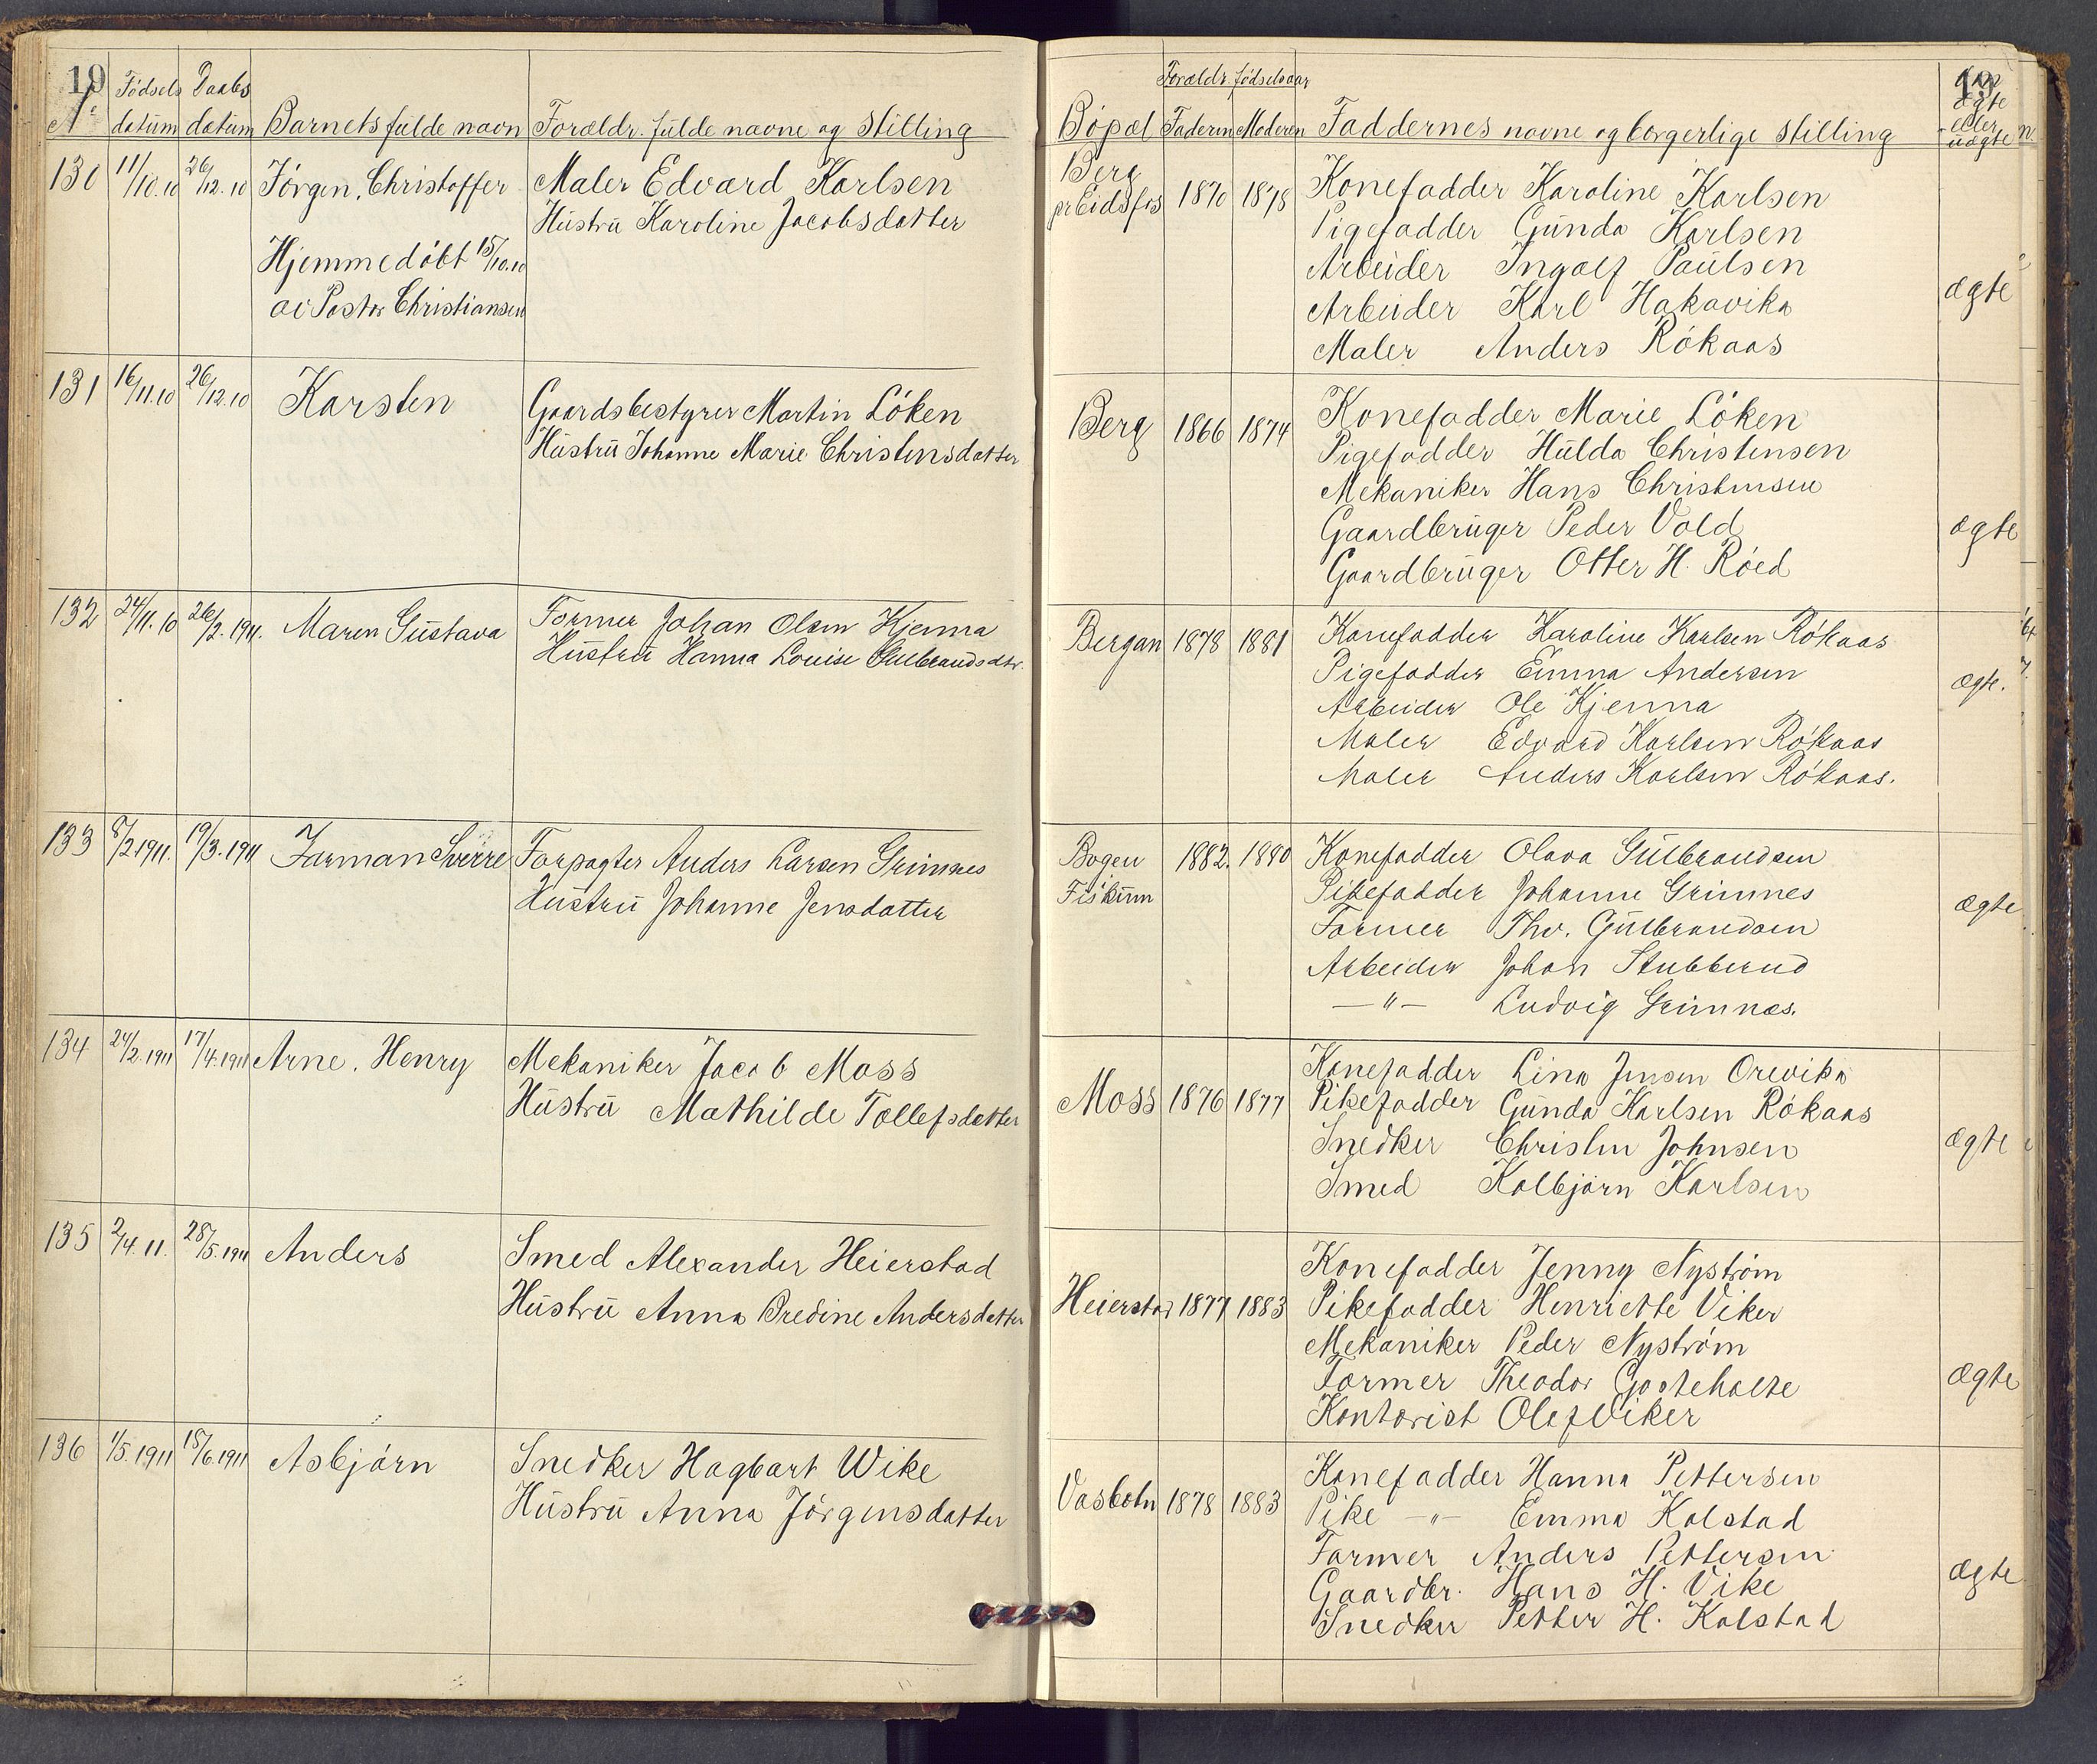 19
No
Fødsels datum
Daabs datum
Barnets fulde navn
Forældr. fulde navne og stilling
130
11/10.10
26/12.10
Jörgen. Christoffer
Hjemmedöbt 15/10.10
av Pastor Christiansen
Maler Edvard Karlsen
Hustru Karoline Jacobsdatter
131
16/11.10
26/12.10
Karsten
Gaardsbestyrer Martin Löken
Hustru Johanne Marie Christensdatter
132
24/11.10
26/2.1911.
Maren Gustava
Former Johan Olsen Kjenna
Hustru Hanna Louise Gulbrandsdtr.
133
8/2 1911.
19/3.1911
Jarman Sverre
Forpagter Anders Larsen Grimnes
Hustru Johanne Jensdatter
134
24/2.1911
17/4.1911
Arne. Henry
Mekaniker Jacob Moss
Hustru Mathilde Tollefsdatter
135
2/4.11.
28/5.1911
Anders
Smed Alexander Heierstad
Hustru Anna Bredine Andersdatter
136
1/5.1911
15/6.1911
Asbjörn
Snedker Hagbart Wike
Hustru Anna Jörgensdatter
19
Forældr. fødselsaar
Böpæl
Faderen
Moderen
Faddernes navne og borgerlige stilling
ægte
eller
uægte
Berg
pr Eidsfos
1870
1878
Konefadder Karoline Karlsen
Pigefadder Gunda Karlsen
Arbeider Ingolf Paulsen
Arbeider Karl Hakavika
Maler Anders Rökaas
ægte
Berg
1866
1874
Konefadder Marie Löken
Pigefadder Hulda Christensen
Mekaniker Hans Christensen
Gaardbruger Peder Vold
Gaardbruger Otter H. Röed
ægte
Bergan
1878
1881
Konefadder Karoline Karlsen Rökaas
Pigefadder Emma Andersen
Arbeider Ole Kjenna
Maler Edvard Karlsen Rökaas
Maler Anders Karlsen Rökaas.
ægte.
Bogen
Fiskum
1882.
1880
Konefadder Olava Gulbrandsen
Pikefadder Johanne Grimnes
Former Thv. Gulbrandsen
Arbeider Johan Stubberud
—"— Ludvig Grimnæs.
ægte
Moss
1876
1877
Konefadder Lina Jensen Orevika
Pikefadder Gunda Karlsen Rökaas
Snedker Christen Johnsen
Smed Kolbjörn Karlsen
ægte
Heierstad
1877
1883
Konefadder Jenny Nyström
Pikefadder Henriette Viker
Mekaniker Peder Nyström
Former Theodor Gosteholte
Kontorist Olef Viker
ægte
Vasbotn
1878
1883
Konefadder Hanna Pettersen
Pike —"— Emma Kolstad
Former Anders Pettersen
Gaardbr. Hans H. Vike
Snedker Petter H. Kolstad
ægte